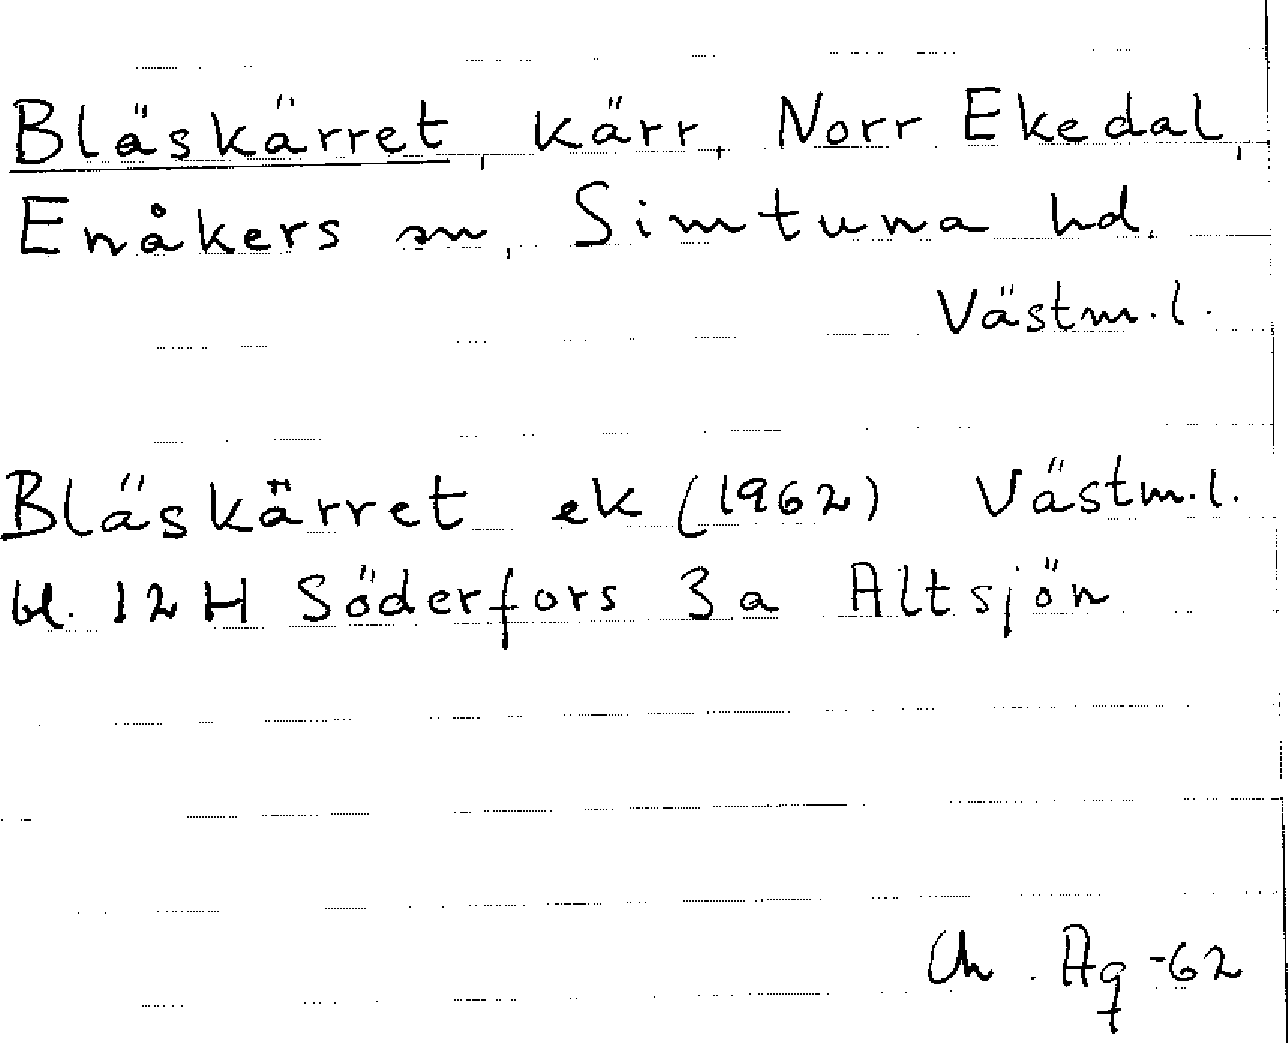 Bläskärret, kärr, Norr Ekedal,
Enåkers sn, Simtuna hd.
Västm.l.
Bläskärret ek (1962) Västm.l.
bl. 12H Söderfors 3a Altsjön
Ch. Ag -62